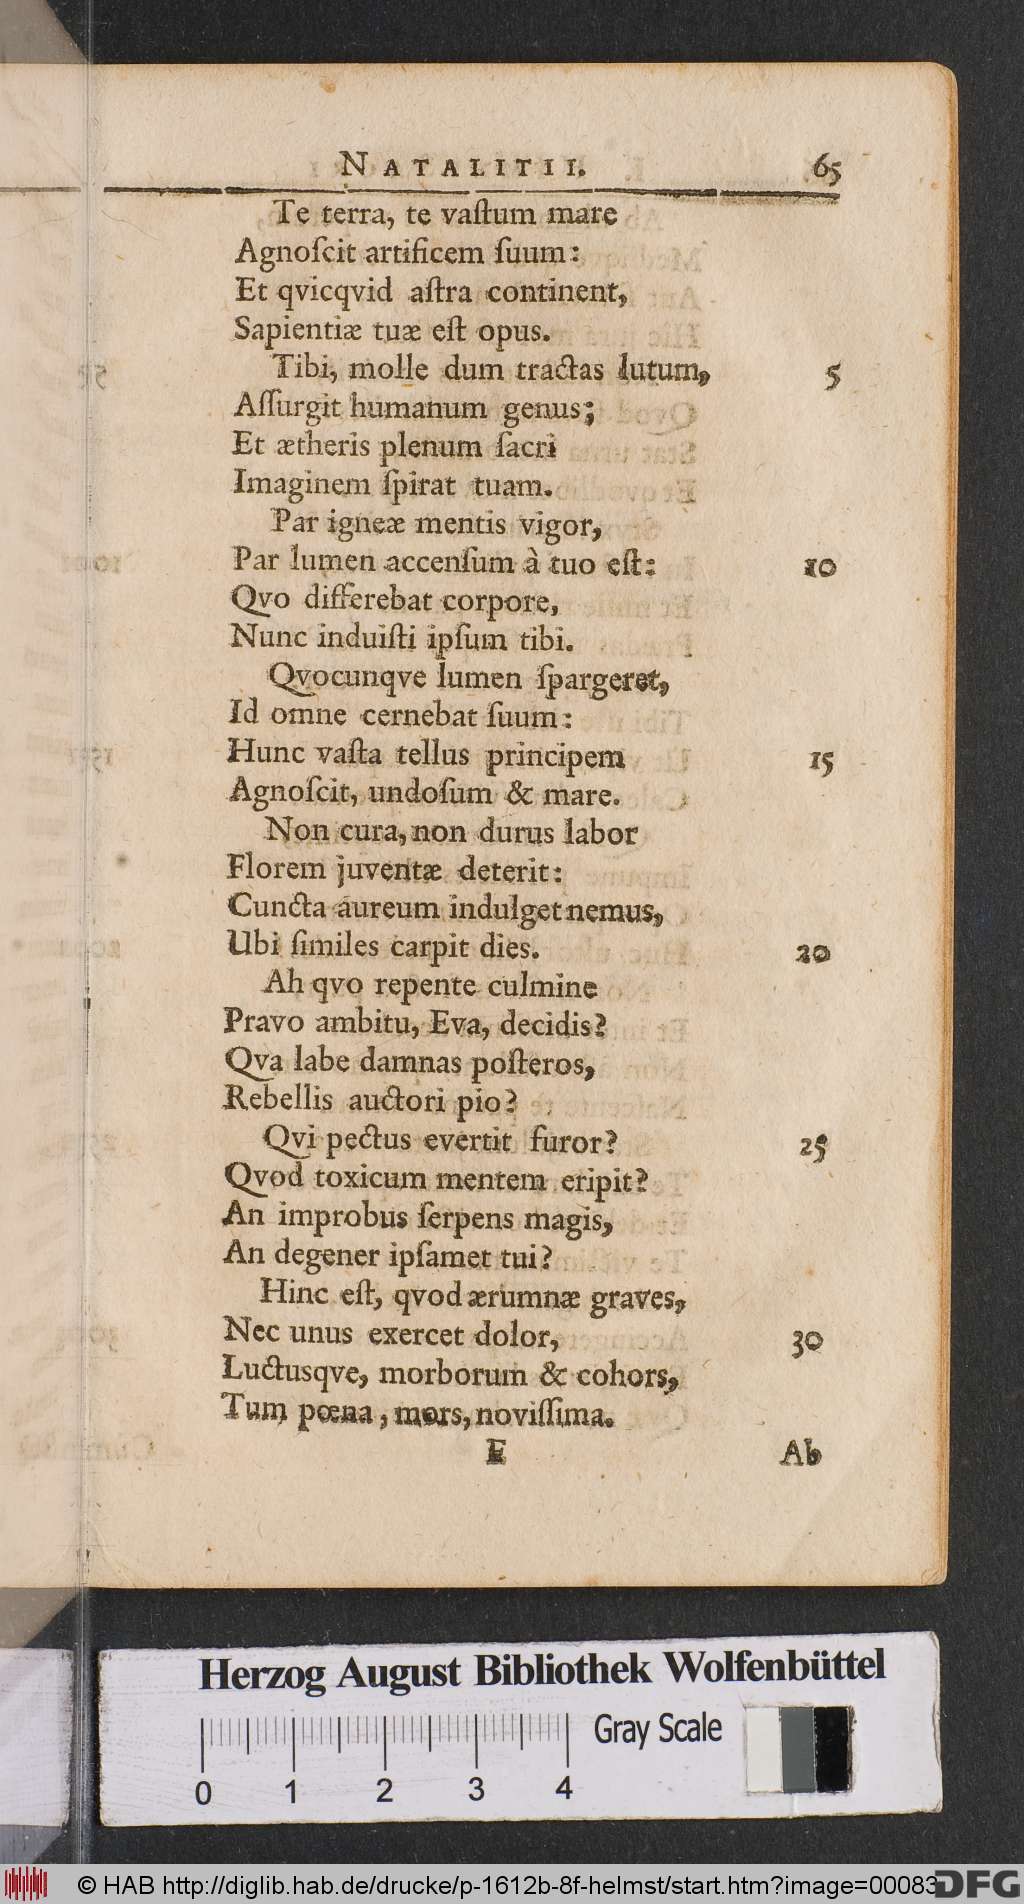 NATALITII. 65
Te terra, te vaſtum mare
Agnoſcit artificem ſuum:
Et qvicqvid aſtra continent,
Sapientiæ tuæ eſt opus.
Tibi, molle dum tractas lutum, 5
Aſſurgit humanum genus;
Et ætheris plenum ſacri
Imaginem ſpirat tuam.
Par igneæ mentis vigor,
Par lumen accenſum à tuo eſt: 10
Qvo differebat corpore,
Nunc induiſti ipſum tibi.
Qvocunqve lumen ſpargeret,
Id omne cernebat ſuum:
Hunc vaſta tellus principem 15
Agnoſcit, undoſum & mare.
Non cura, non durus labor
Florem juventæ deterit:
Cuncta aureum indulget nemus,
Ubi ſimiles carpit dies. 20
Ah qvo repente culmine
Pravo ambitu, Eva, decidis?
Qva labe damnas poſteros,
Rebellis auctori pio?
Qvi pectus evertit furor? 25
Qvod toxicum mentem eripit?
An improbus ſerpens magis,
An degener ipſamet tui?
Hinc eſt, qvod ærumnæ graves,
Nec unus exercet dolor, 30
Luctusqve, morborum & cohors,
Tum pœna, mors, noviſſima.
E Ab
Herzog August Bibliothek Wolfenbüttel
Gray Scale
0 1 2 3 4
© HAB http://diglib.hab.de/drucke/p-1612b-8f-helmst/start.htm?image=00083
DFG